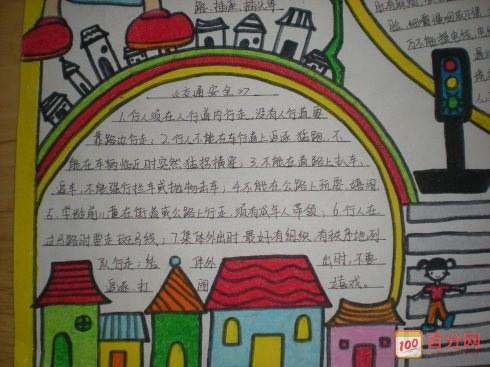 路、插座、插头等
《交通安全》
1.行人须在人行道内行走,没有人行道要
靠路边行走;2.行人不能在车行道上追逐、猛跑,不
能在车辆临近时突然猛拐横穿;3.不能在道路上扒车、
追车,不能强行拦车或抛物击车;4.不能在公路上玩耍、嬉闹
5.学龄前儿童在街道或公路上行走,须有成年人带领;6.行人在
过马路时要走斑马线;7.集体外出时,最好有组织、有秩序地列
队行走;结伴外出时,不要
追逐、打闹、游戏。
100 百分网